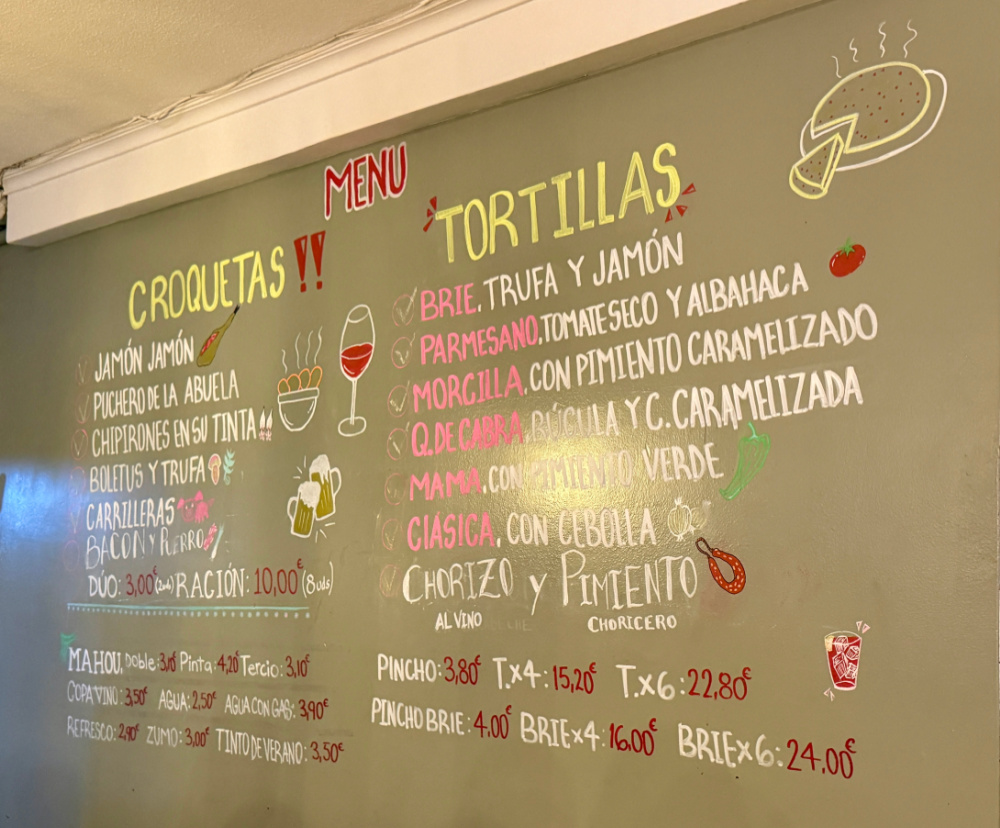 MENU
CROQUETAS!!
JAMÓN JAMÓN
PUCHERO DE LA ABUELA
CHIPIRONES EN SU TINTA
BOLETUS Y TRUFA
CARRILLERAS
BACON Y PUERRO
DÚO: 3,00€ (2uds) RACIÓN: 10,00€ (8uds)
MAHOU. Doble: 3,10€ Pinta: 4,20€ Tercio: 3,10€
COPA VINO: 3,50€ AGUA: 2,50€ AGUA CON GAS: 3,90€
REFRESCO: 2,90€ ZUMO: 3,00€ TINTO DE VERANO: 3,50€
TORTILLAS
BRIE, TRUFA Y JAMÓN
PARMESANO, TOMATE SECO Y ALBAHACA
MORCILLA, CON PIMIENTO CARAMELIZADO
Q. DE CABRA RÚCULA Y C. CARAMELIZADA
MAMA, CON PIMIENTO VERDE
CLÁSICA, CON CEBOLLA
CHORIZO y PIMIENTO
AL VINO CHORICERO
PINCHO: 3,80€ T.x4: 15,20€ T.x6: 22,80€
PINCHO BRIE: 4.00€ BRIEx4: 16,00€ BRIEx6: 24.00€